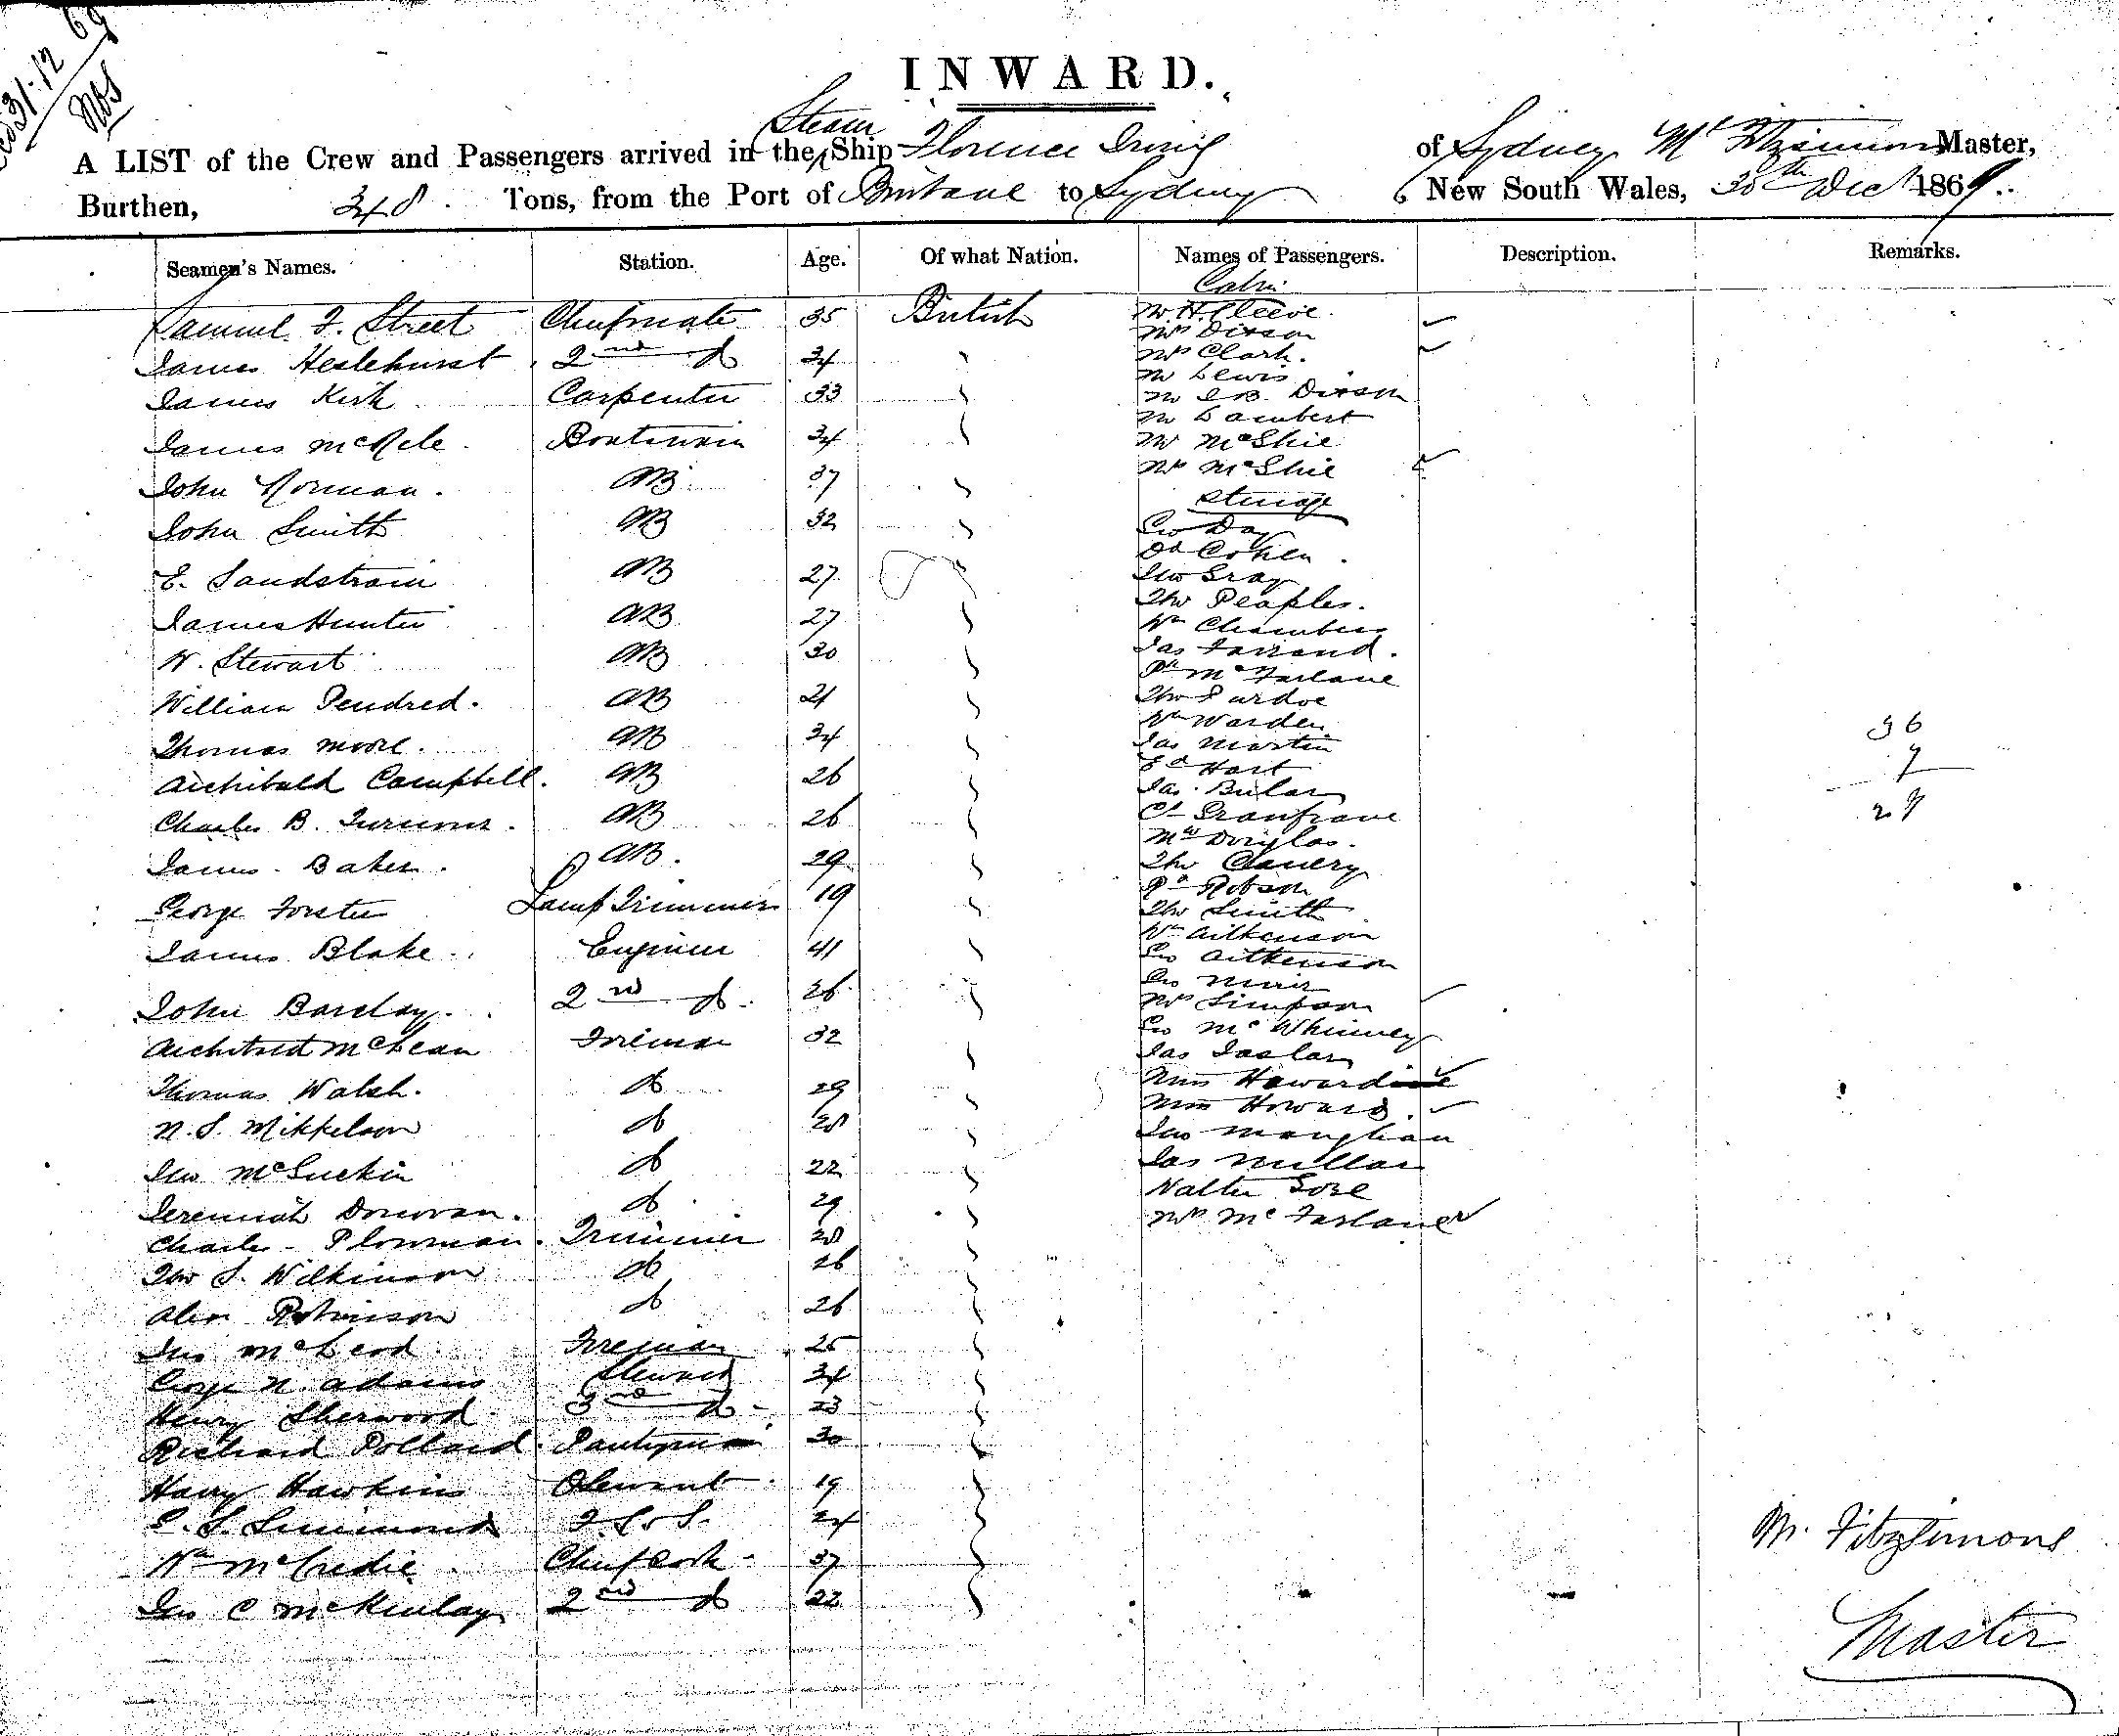 31.12 69
INWARD.
Steam
A LIST of the Crew and Passengers arrived in the Ship Florence Irving of Sydney, Mc Fitzsimons Master,
Burthen, 348 Tons, from the Port of Brisbane to Sydney New South Wales, 30th Decr 1869.
Seamen's Names. Station. Age. Of what Nation. Names of Passengers. Description. Remarks.
Cabin
Samuel F. Street Chiefmate 35 British
James Heslehurst 2nd do 34
James Kirk Carpenter 33
James McRele Boatswain 34
John Norman. AB 37
John Smith AB 32
E. Sandstrom AB 27
James Hunter AB 27
W. Stewart AB 30
William Pendred. AB 21
Thomas Moore. AB 34
Archibald Campbell. AB 26
Charles B. AB 26
James Baker. AB. 29
George Forster Lamp Trimmer 19
James Blake Engineer 41
John Barclay. 2nd do. 26
Archibald McLean Fireman 32
Thomas Walsh. do 29
N. S. Mikkelson do 28
Jno McGuckin do 22
Jeremiah Donovan. do 29
Charles Plowman. Trimmer 28
Thos S. Wilkinson do 26
Alex Robinson do 26
Jno McLeod Fireman 25
George N. Adams Steward 34
Henry Sherwood 3rd do 23
Richard Pollard Pantryman 30
Harry Hawkins 19
S. Simmonds 24
Wm McCredie Chief Cook 37
Jno C McKinlay 2nd do 22
Mr H. Cleeve.
Mrs Dixson
Mrs Clark.
Mr Lewis
Mr J.B. Dixson
Mr Lambert
Mr McShie
Mrs McShie
Steerage
Geo Day
Dd Cohen.
Jno Gray
Thos Peaples.
Wm Chambers
Jas Farrand.
Mc Farlane
Thos Purdoe
Wm Warden
Jas Martin
Ed Hart
Jas. Butar
Douglas.
Thos Clavery
Rd Robson
Thos Smith
Wm Aitkenson
Geo Aitkenson
Geo Muir
Mrs Simpson
Geo McWhinney
Jas
Miss Hawardine
Miss Howard.
Jno Manghan
Jas Millar
Walter Gore
Mrs McFarlane
36
7
29
M. Fitzsimons
Master